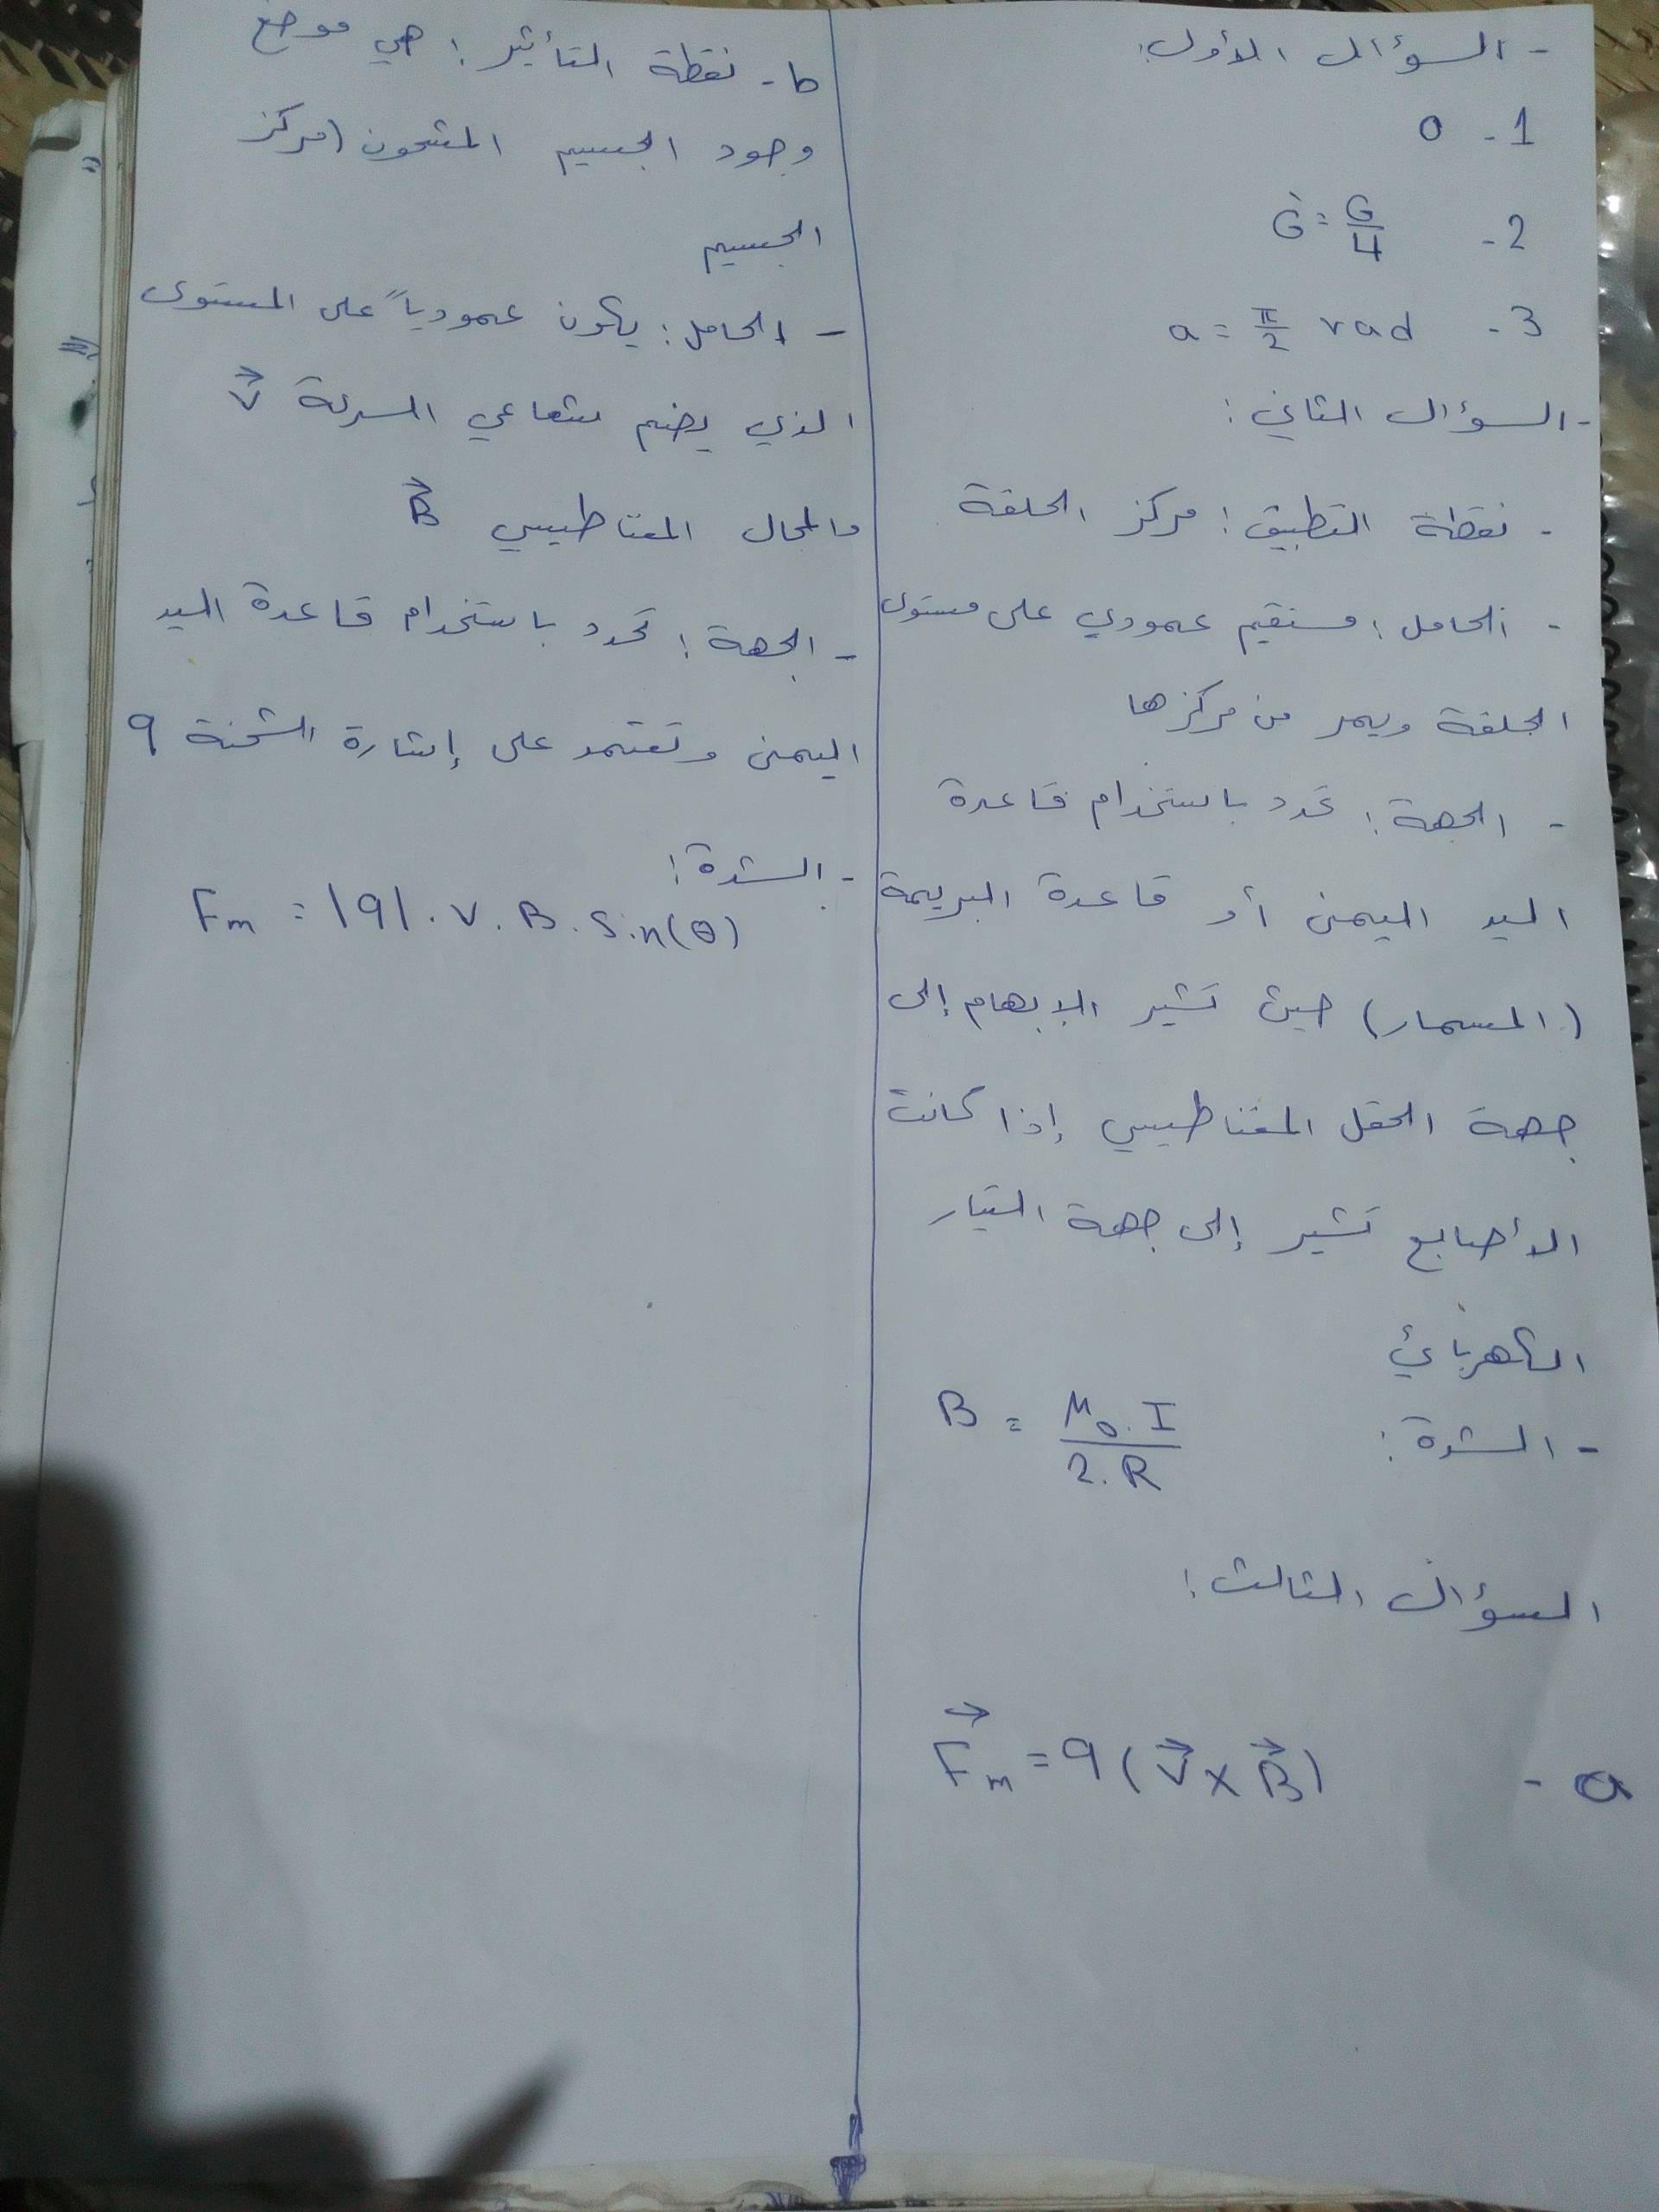 - السؤال الأول:
1 - 0
2 - G' = G/4
3 - a = π/2 rad
- السؤال الثاني:
- نقطة التطبيق: مركز الحلقة
- الحامل: مستقيم عمودي على مستوى
الحلقة ويمر من مركزها
- الجهة: تحدد باستخدام قاعدة
اليد اليمنى أو قاعدة البريمة
(المسمار) حيث تشير الإبهام إلى
جهة الحقل المغناطيسي إذا كانت
الأصابع تشير إلى جهة التيار
الكهربائي
- الشدة: B = μ₀.I / 2.R
السؤال الثالث:
a - F⃗m = q (v⃗ × B⃗)
b - نقطة التأثير: هي موضع
وجود الجسيم المشحون (مركز
الجسيم
- الحامل: يكون عمودياً على المستوى
الذي يضم شعاعي السرعة v⃗
والمجال المغناطيسي B⃗
- الجهة: تحدد باستخدام قاعدة اليد
اليمنى وتعتمد على إشارة الشحنة q
- الشدة:
Fm = |q|.v.B.sin(θ)